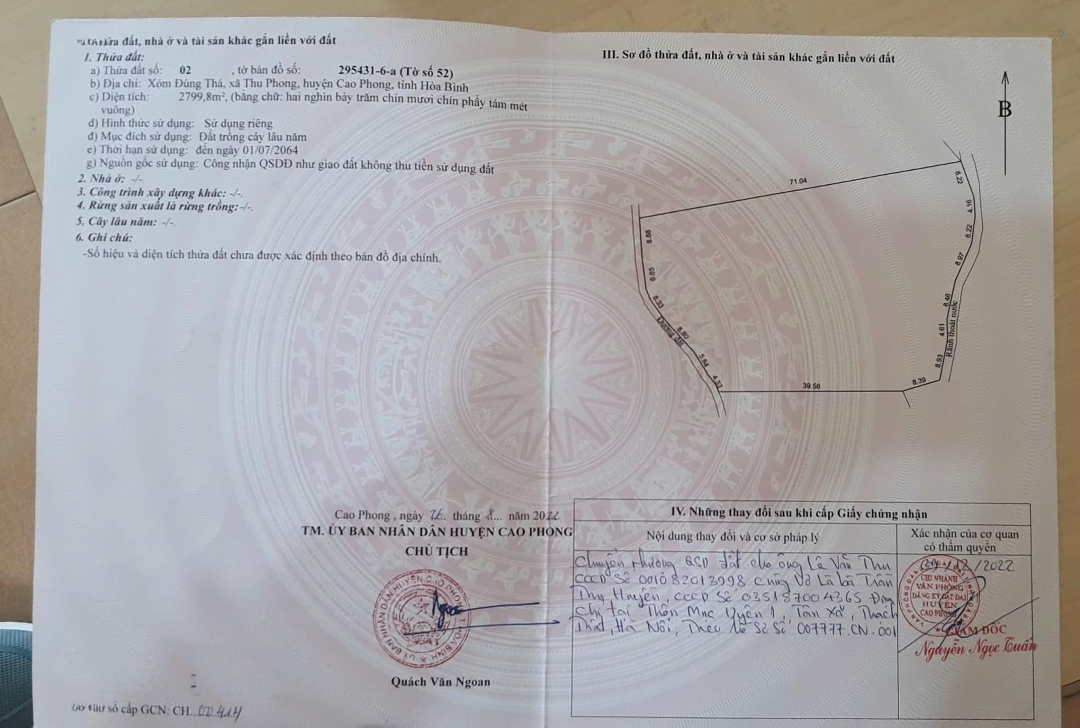 đất, nhà ở và tài sản khác gắn liền với đất
1. Thửa đất:
a) Thửa đất số: 02 , tờ bản đồ số: 295431-6-a (Tờ số 52)
b) Địa chỉ: Xóm Đúng Thá, xã Thu Phong, huyện Cao Phong, tỉnh Hòa Bình
c) Diện tích: 2799,8m², (bằng chữ: hai nghìn bảy trăm chín mươi chín phẩy tám mét
vuông)
d) Hình thức sử dụng: Sử dụng riêng
đ) Mục đích sử dụng: Đất trồng cây lâu năm
e) Thời hạn sử dụng: đến ngày 01/07/2064
g) Nguồn gốc sử dụng: Công nhận QSDĐ như giao đất không thu tiền sử dụng đất
2. Nhà ở: -/-
3. Công trình xây dựng khác: -/-.
4. Rừng sản xuất là rừng trồng:-/-.
5. Cây lâu năm: -/-
6. Ghi chú:
-Số hiệu và diện tích thửa đất chưa được xác định theo bản đồ địa chính.
Cao Phong, ngày 26. tháng 8... năm 2022
TM. ỦY BAN NHÂN DÂN HUYỆN CAO PHONG
CHỦ TỊCH
Quách Văn Ngoan
sổ cấp GCN: CH. 00414
III. Sơ đồ thửa đất, nhà ở và tài sản khác gắn liền với đất
B
71.04
8.22
4.16
6.22
8.97
8.46
4.61
8.93
Rãnh thoát nước
8.39
39.56
8.88
6.65
8.33
8.80
5.64
4.33
Đường đất
IV. Những thay đổi sau khi cấp Giấy chứng nhận
Nội dung thay đổi và cơ sở pháp lý
Xác nhận của cơ quan
có thẩm quyền
Chuyển nhượng QSD đất cho ông Lê Văn Thu
CCCD số 001082013998 cùng vợ là bà Trần
Thị Huyền, CCCD số 035187004365 Địa
chỉ tại Thôn Mục Uyên 1, Tân Xã, Thạch
Thất, Hà Nội, Theo hồ sơ số 007777.CN.001
/12/2022
CHI NHÁNH
VĂN PHÒNG
ĐĂNG KÝ ĐẤT ĐAI
HUYỆN
CAO PHONG
GIÁM ĐỐC
Nguyễn Ngọc Tuân